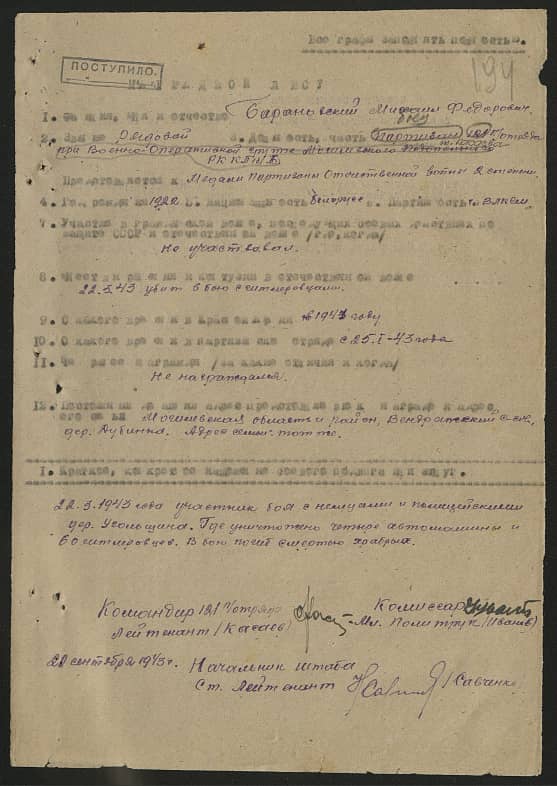 Все графы заполнять полностью.
ПОСТУПИЛО.
194
НАГРАДНОЙ ЛИСТ
1. Фамилия, имя и отчество Барановский Михаил Федорович
2. Звание Рядовой 3. Должность, часть Партизан 121 п/отряда
при Военно-Оперативной группе Могилевского
РККП/б/Б
Представляется к Медали Партизану Отечественной войны 2 степени.
4. Год рождения 1922 5. Национальность белорус 6. Партийность чл. ВЛКСМ
7. Участие в гражданской войне, последующих боевых действиях по
защите СССР и отечественной войне /где, когда/
Не участвовал.
8. Имеет ли ранения и контузии в отечественной войне
22.3.43 убит в бою с гитлеровцами.
9. С какого времени в Красной армии с 1941 году
10. С какого времени в партизанском отряде с 25.I-43 года
11. Чем ранее награжден /за какие отличия и когда/
Не награждался.
12. Постоянный домашний адрес представляемого к награде и адрес
его семьи Могилевская область и район, Вендрожский с-сов.,
дер. Дубинка. Адрес семьи: тот же.
1. Краткое, конкретное изложение боевого подвига или заслуг.
22.3.1943 года участник боя с немцами и полицейскими
дер. Усольщина. Где уничтожено четыре автомашины и
60 гитлеровцев. В бою погиб смертью храбрых.
Командир 121 п/отряда Комиссар
Лейтенант /Касаев/ Мл. Политрук /Иванов/
20 сентября 1943 г. Начальник штаба
Ст. Лейтенант /Савченко